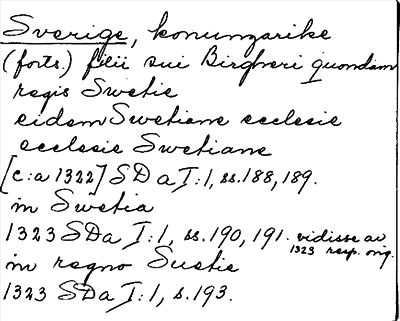 Sverige, konungarike
(forts.) filii sui Birgheri quondam
regis Swetie
eidem Swetiane ecclesie
ecclesie Swetiane
[c:a 1322] SDa I:1, ss.188, 189.
in Swetia
1323 SDa I:1, ss.190, 191. vidisse av
1323 resp. orig.
in regno Suetie
1323 SDa I:1, s.193.